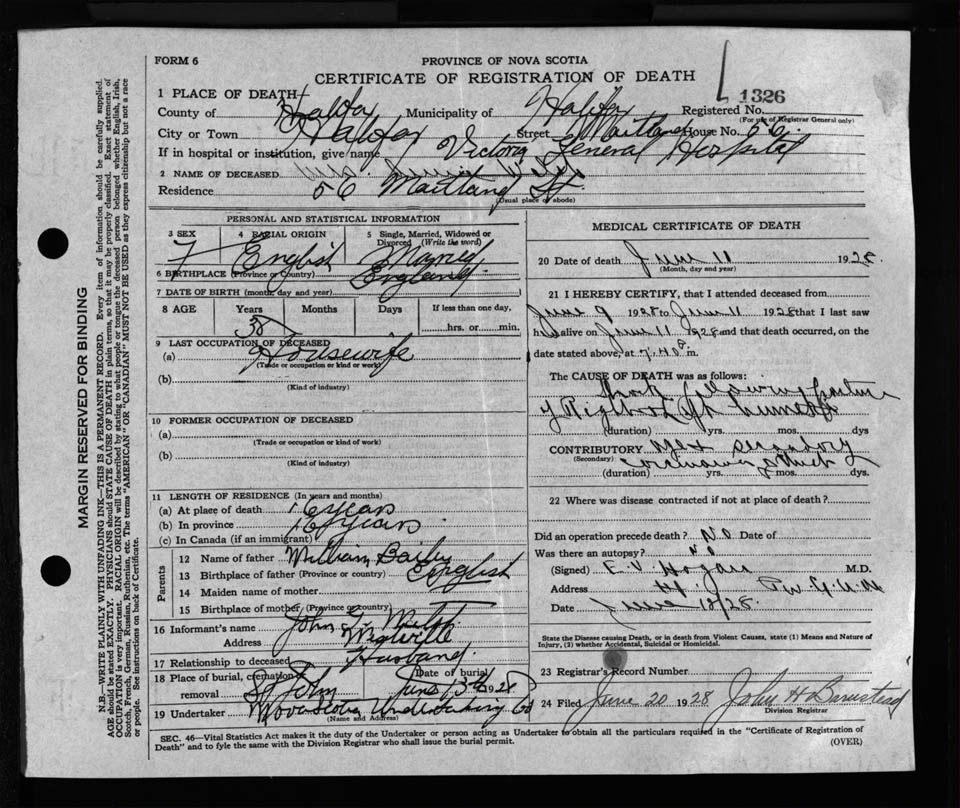 FORM 6
PROVINCE OF NOVA SCOTIA
CERTIFICATE OF REGISTRATION OF DEATH
1326
1 PLACE OF DEATH
County of Halifax Municipality of Halifax Registered No.
(For use of Registrar General only)
City or Town Halifax Street Maitland House No. 56
If in hospital or institution, give name Victoria General Hospital
2 NAME OF DECEASED Mrs.
Residence 56 Maitland St.
(Usual place of abode)
PERSONAL AND STATISTICAL INFORMATION
3 SEX 4 RACIAL ORIGIN 5 Single, Married, Widowed or Divorced (Write the word)
F English Married
6 BIRTHPLACE (Province or Country) England
7 DATE OF BIRTH (month, day and year)
8 AGE Years Months Days If less than one day,
hrs. or min.
9 LAST OCCUPATION OF DECEASED
(a) Housewife
(Trade or occupation or kind of work)
(b)
(Kind of industry)
10 FORMER OCCUPATION OF DECEASED
(a)
(Trade or occupation or kind of work)
(b)
(Kind of industry)
11 LENGTH OF RESIDENCE (In years and months)
(a) At place of death 16 years
(b) In province 16 years
(c) In Canada (if an immigrant)
Parents
12 Name of father William Baily
13 Birthplace of father (Province or country) English
14 Maiden name of mother
15 Birthplace of mother (Province or country)
16 Informant's name John
Address
17 Relationship to deceased Husband
18 Place of burial, cremation or removal St John Date of burial June 13th 1928
19 Undertaker Nova Scotia Undertaking Co
(Name and Address)
MEDICAL CERTIFICATE OF DEATH
20 Date of death June 11 1928.
(Month, day and year)
21 I HEREBY CERTIFY, that I attended deceased from
June 9 1928 to June 11 1928 that I last saw
her alive on June 11 1928 and that death occurred, on
date stated above, at 7.40 m.
The CAUSE OF DEATH was as follows:
Shock following fracture
of Right
(duration) yrs. mos. dys
CONTRIBUTORY secondary
(Secondary)
(duration) yrs. mos. dys.
22 Where was disease contracted if not at place of death?
Did an operation precede death? No Date of
Was there an autopsy? No
(Signed) E. V. Hogan M.D.
Address
Date June 18/28.
State the Disease causing Death, or in death from Violent Causes, state (1) Means and Nature of
Injury, (2) whether Accidental, Suicidal or Homicidal.
23 Registrar's Record Number
24 Filed June 20 1928 John H Barnstead
Division Registrar
SEC. 46—Vital Statistics Act makes it the duty of the Undertaker or person acting as Undertaker to obtain all the particulars required in the "Certificate of Registration of
Death" and to fyle the same with the Division Registrar who shall issue the burial permit.
(OVER)
MARGIN RESERVED FOR BINDING
N.B.—WRITE PLAINLY WITH UNFADING INK—THIS IS A PERMANENT RECORD. Every item of information should be carefully supplied.
AGE should be stated EXACTLY. PHYSICIANS should STATE CAUSE OF DEATH in plain terms, so that it may be properly classified. Exact statement of
OCCUPATION is very important. RACIAL ORIGIN will be described by stating to what people or tongue the deceased person belonged whether English, Irish,
Scotch, French, German, Russian, Ruthenian, etc. The terms "AMERICAN" OR "CANADIAN" MUST NOT BE USED as they express citizenship but not a race
or people. See instructions on back of Certificate.